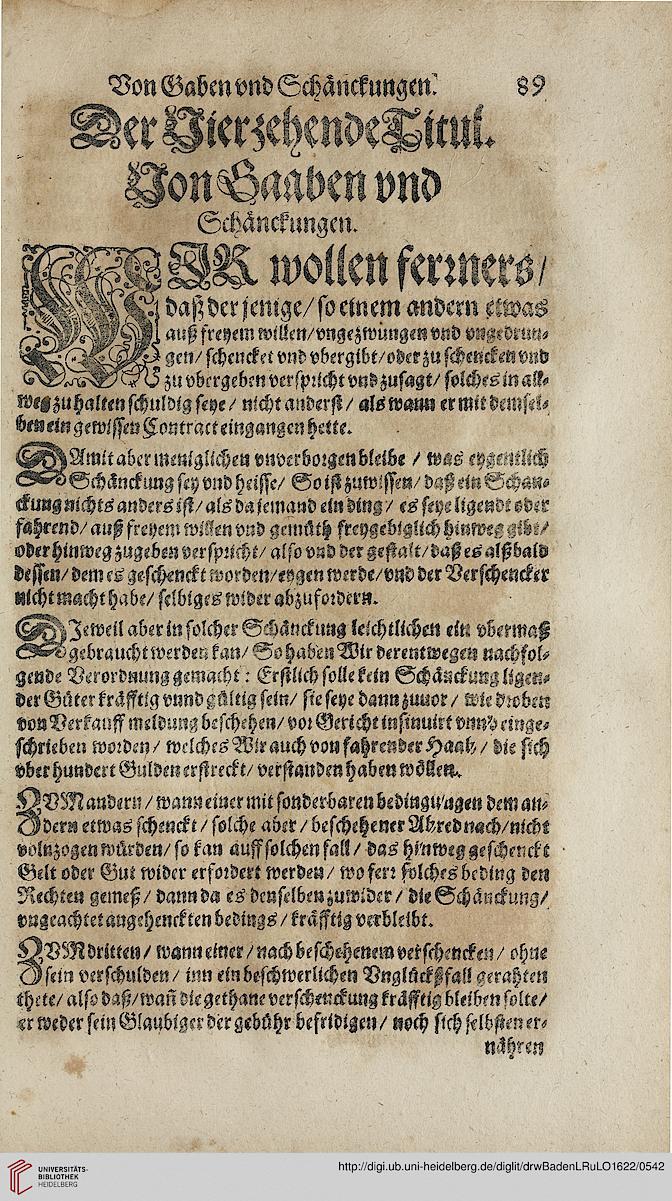 Von Gaben vnd Schänckungen. 89
Der Vierzehende Titul.
Von Gaaben vnd
Schänckungen.
WIR wollen ferrners /
daß der jenige / so einem andern etwas
auß freyem willen / vngezwungen vnd vngedrun-
gen / schencket vnd vbergibt / oder zu schencken vnd
zu vbergeben verspricht vnd zusagt / solches in all-
weg zu halten schuldig seye / nicht anderst / als wann er mit demsel-
ben ein gewissen Contract eingangen hette.
DAmit aber meniglichen vnverborgen bleibe / was eygentlich
Schänckung sey vnd heisse / So ist zuwissen / daß ein Schän-
ckung nichts anders ist / als da jemand ein ding / es seye ligendt oder
fahrend / auß freyem willen vnd gemüth freygebiglich hinweg gibt /
oder hinweg zugeben verspricht / also vnd der gestalt / daß es alßbald
dessen / dem es geschenckt worden / eygen werde / vnd der Verschencker
nicht macht habe / selbiges wider abzufordern.
DJeweil aber in solcher Schänckung leichtlichen ein vbermaß
gebraucht werden kan / So haben Wir derentwegen nachfol-
gende Verordnung gemacht : Erstlich solle kein Schänckung ligen-
der Güter kräfftig vnnd gültig sein / sie seye dann zuuor / wie droben
von Verkauff meldung beschehen / vor Gericht insinuirt vnnd einge-
schrieben worden / welches Wir auch von fahrender Haab / die sich
vber hundert Gulden erstreckt / verstanden haben wöllen.
ZVM andern / wann einer mit sonderbaren bedingungen dem an-
dern etwas schenckt / solche aber / beschehener Abred nach / nicht
volnzogen würden / so kan auff solchen fall / das hinweg geschenckt
Gelt oder Gut wider erfordert werden / wo ferr solches beding den
Rechten gemeß / dann da es denselben zuwider / die Schänckung /
vngeachtet angehenckten bedings / kräfftig verbleibt.
ZVM dritten / wann einer / nach beschehenem verschencken / ohne
sein verschulden / inn ein beschwerlichen Vnglücksfall gerahten
thete / also daß / wañ die gethane verschenckung kräfftig bleiben solte /
er weder sein Glaubiger der gebühr befridigen / noch sich selbsten er-
nähren
UNIVERSITÄTS-
BIBLIOTHEK
HEIDELBERG
http://digi.ub.uni-heidelberg.de/diglit/drwBadenLRuLO1622/0542